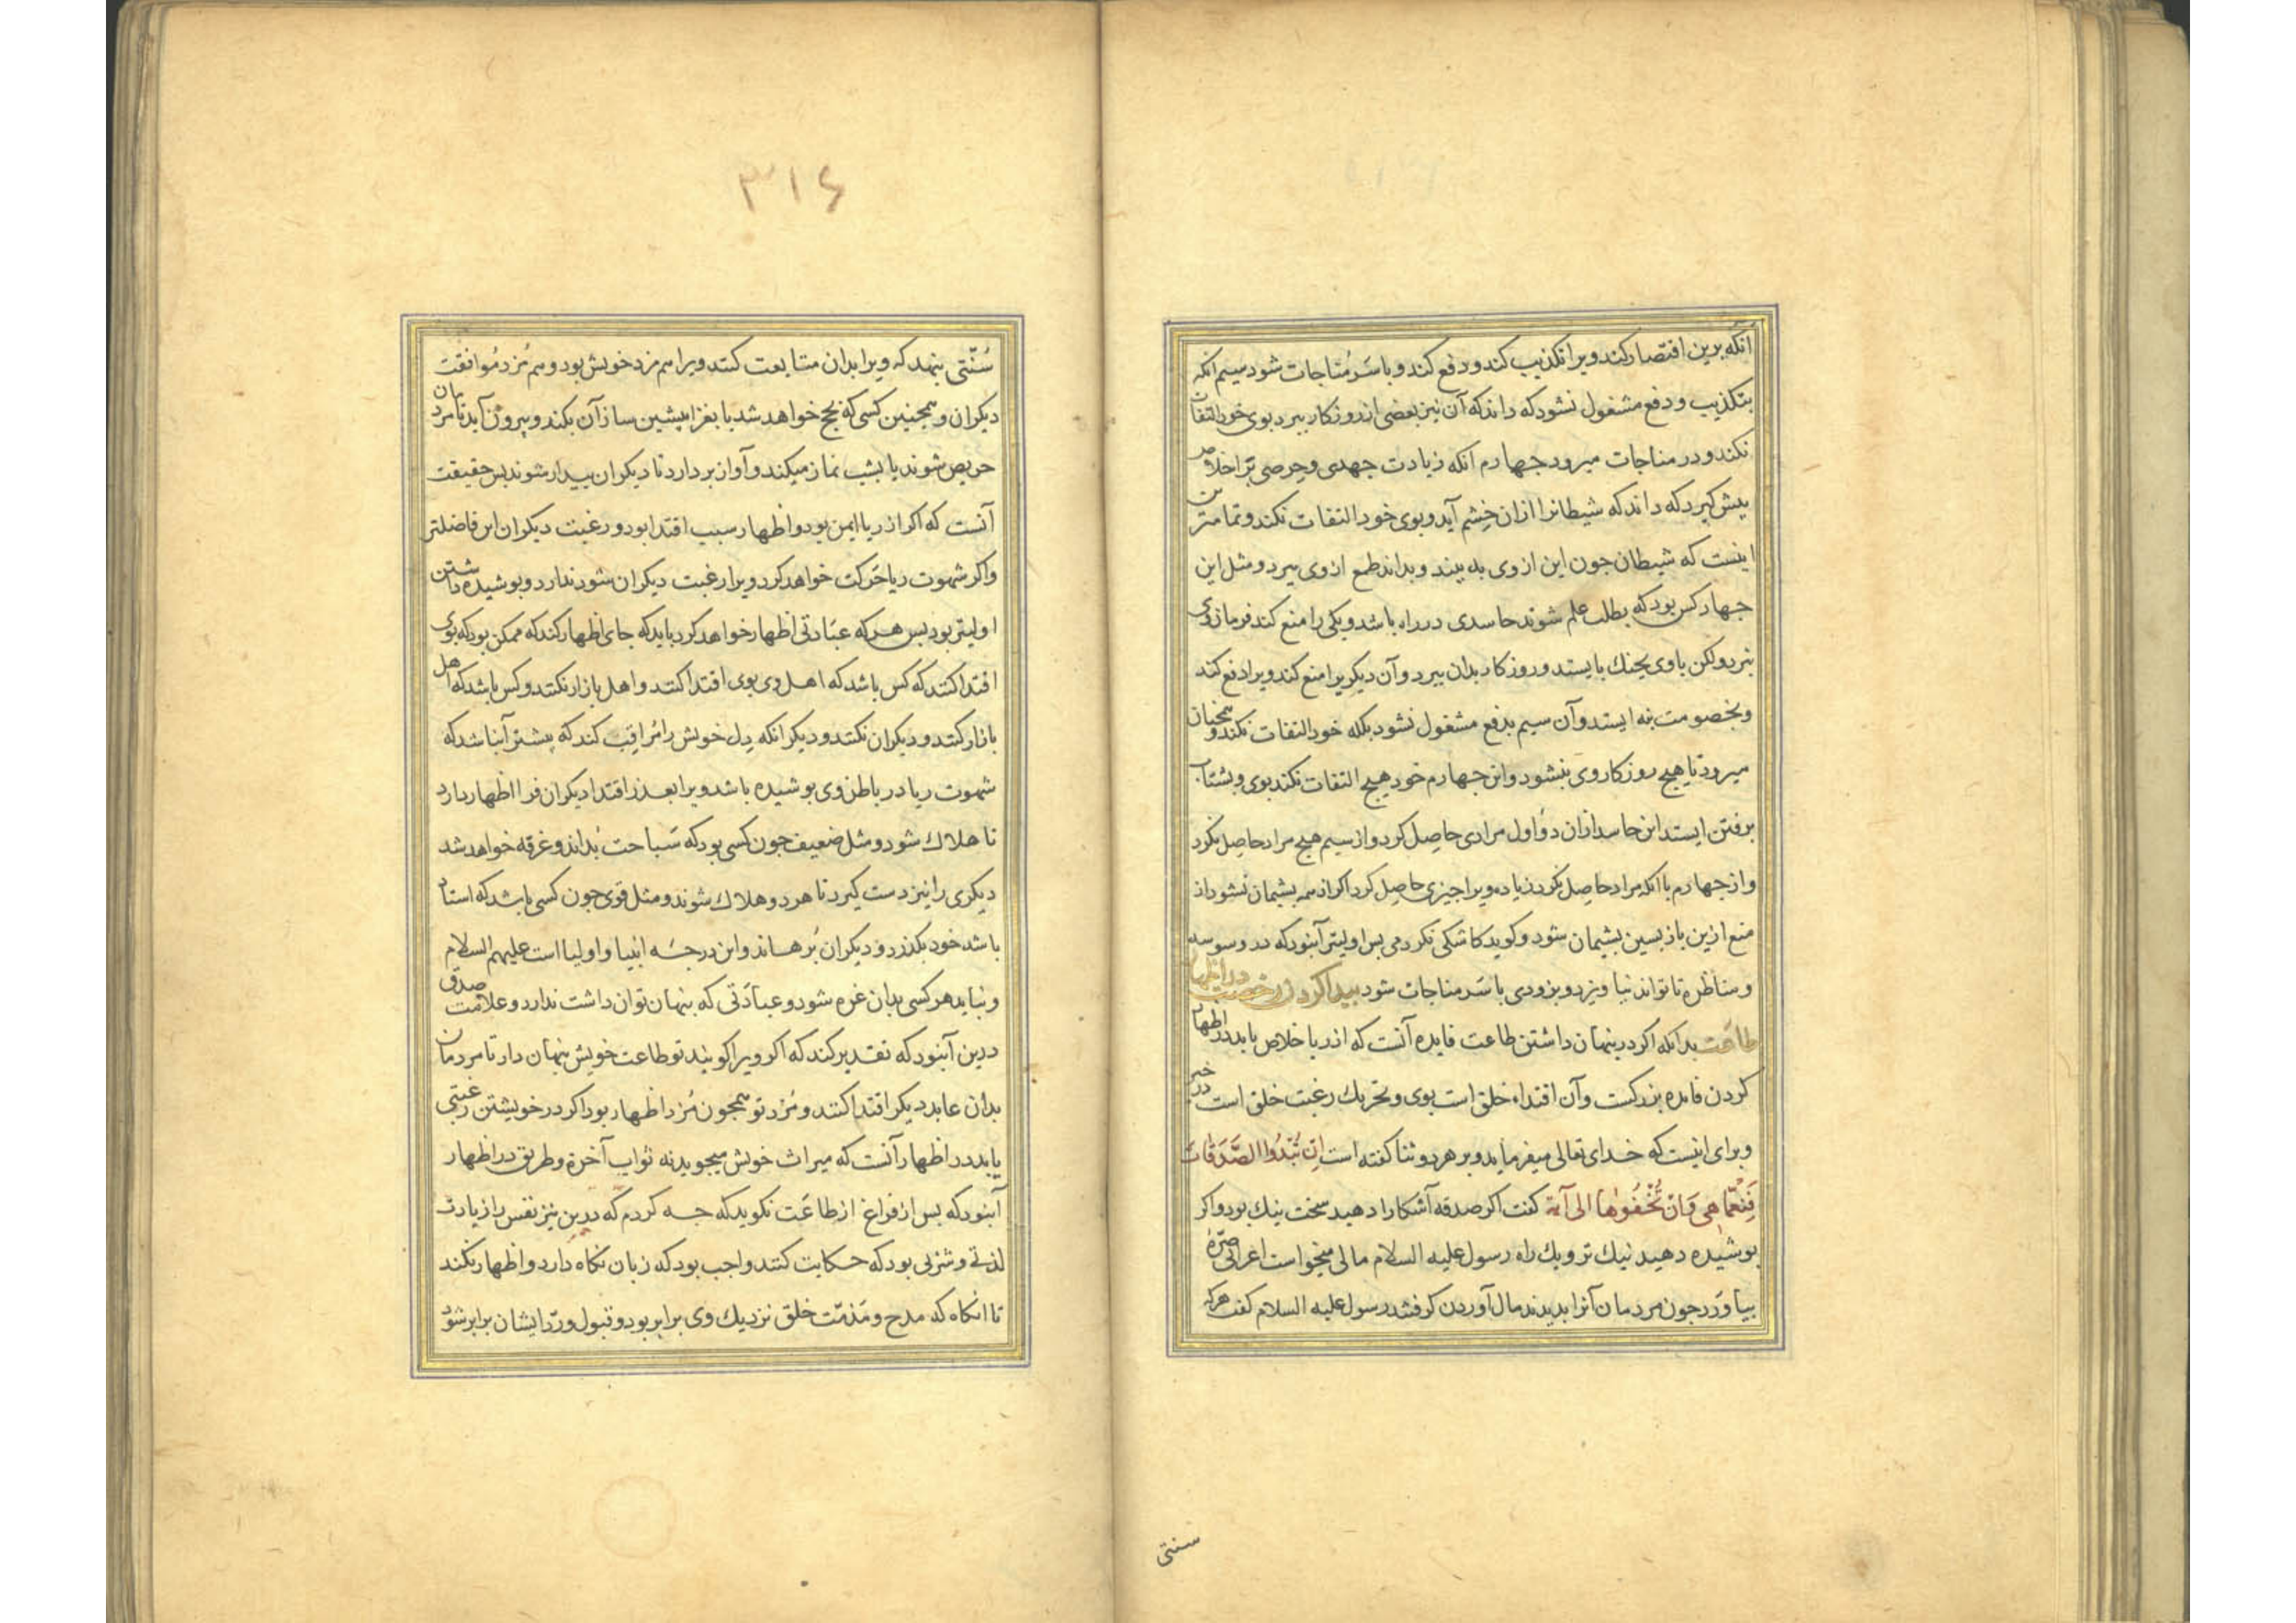 آنکه برین اقتصار کند ویرا تکذیب کند و دفع کند و با سر مناجات شود سیم آنکه
بتکذیب و دفع مشغول نشود که داند که آن نیز بعضی از روزکار ببرد بوی خود التفات
نکند و در مناجات میرود جهارم آنکه زیادت جهدی و حرصی بر اخلاص
بیش کیرد که داند که شیطانرا ازان خشم آید و بوی خود التفات نکند و تمامترین
اینست که شیطان جون این از وی بد بیند و بداند طمع از وی ببرد و مثل این
جهار کس بود که بطلب علم شوند حاسدی در راه باشد و یکی را منع کند فرمان وی
نبرد ولکن با وی بجنك بایستد و روزکار بدان ببرد و آن دیکر یرا منع کند ویرا دفع کند
و بخصومت نه ایستد و آن سیم بدفع مشغول نشود بلکه خود التفات نکند و همچنان
میرود تا هیچ روزکار وی بنشود و این جهارم خود هیچ التفات نکند بوی و بشتاب
برفتن ایستد این حاسد ازان دو اول مرادی حاصل کرد و از سیم هیچ مراد حاصل نکرد
و از جهارم با آنکه مراد حاصل نکرد زیاده ویرا جیزی حاصل کرد اکر از همه بشیمان نشود از
منع ازین بازبسین بشیمان شود و کوید کاشکی نکردمی بس اولیتر آنبود که در وسوسه
و مناظره تا تواند نیاویزد و بزودی با سر مناجات شود بیدا کردن رخصت در اظهار
طاعت بدانکه اکر در بنهان داشتن طاعت فایده آنست که از ریا خلاص یابد در اظهار
کردن فایده بزرکست و آن اقتداء خلق است بوی و تحریك رغبت خلق است در خیر
و برای اینست که خدای تعالی میفرماید و بر هر دو ثنا کفته است اِن تُبْدُوا الصَّدَقاتِ
فَنِعِمّا هِیَ وَاِنْ تُخْفُوها الی آیه کفت اکر صدقه آشکارا دهید سخت نیك بود و اکر
بوشیده دهید نیك تر و یك راه رسول علیه السلام مالی میخواست اعرابی صُرّهٔ
بیاورد جون مردمان آنرا بدیدند مال آوردن کرفتند رسول علیه السلام کفت هرکه
سنتی
۳۱۶
سُنّتی بنهد که ویرا بدان متابعت کنند ویرا هم مزد خویش بود و هم مُزد مُوافقت
دیکران و همچنین کسی که بحج خواهد شد یا بغزا بیشین ساز آن بکند و بیرون آید تا مردمان
حریص شوند یا بشب نماز میکند و آواز بردارد تا دیکران بیدار شوند بس حقیقت
آنست که اکر از ریا ایمن بود و اظهار سبب اقتدا بود و رغبت دیکران این فاضلتر
و اکر شهوت ریا حَرکت خواهد کرد ویرا رغبت دیکران سود ندارد و بوشیده داشتن
اولیتر بود بس هرکه عبادتی اظهار خواهد کرد باید که جای اظهار کند که ممکن بود که بوی
اقتدا کنند که کس باشد که اهل وی بوی اقتدا کنند و اهل بازار نکنند و کس باشد که اهل
بازار کنند و دیکران نکنند و دیکر آنکه دل خویش را مُراقب کند که بیشتر آن باشد که
شهوت ریا در باطن وی بوشیده باشد ویرا بعذر اقتدا دیکران فرا اظهار دارد
تا هلاك شود و مثل ضعیف جون کسی بود که سَباحت نداند و غرقه خواهد شد
دیکری را نیز دست کیرد تا هر دو هلاك شوند و مثل قوی جون کسی باشد که استاد
باشد خود بکذرد و دیکران بُرهاند و این درجهٔ انبیا و اولیا است علیهم السلام
و نباید هر کسی بدان غره شود و عبادتی که بنهان توان داشت ندارد و علامت صدق
درین آنبود که تقدیر کند که اکر ویرا کویند تو طاعت خویش بنهان دار تا مردمان
بدان عابد دیکر اقتدا کنند و مُزد تو همجون مُزد اظهار بود اکر در خویشتن رغبتی
یابد در اظهار آنست که میراث خویش میجوید نه ثواب آخرة و طریق در اظهار
آنبود که بس از فراغ از طاعَت نکوید که جه کردم که درین نیز نفس را زیادت
لذتی و شرابی بود که حکایت کنند واجب بود که زبان نکاه دارد و اظهار نکند
تا آنکاه که مدح و مَذمّت خلق نزدیك وی برابر بود و قبول و ردّ ایشان برابر شود